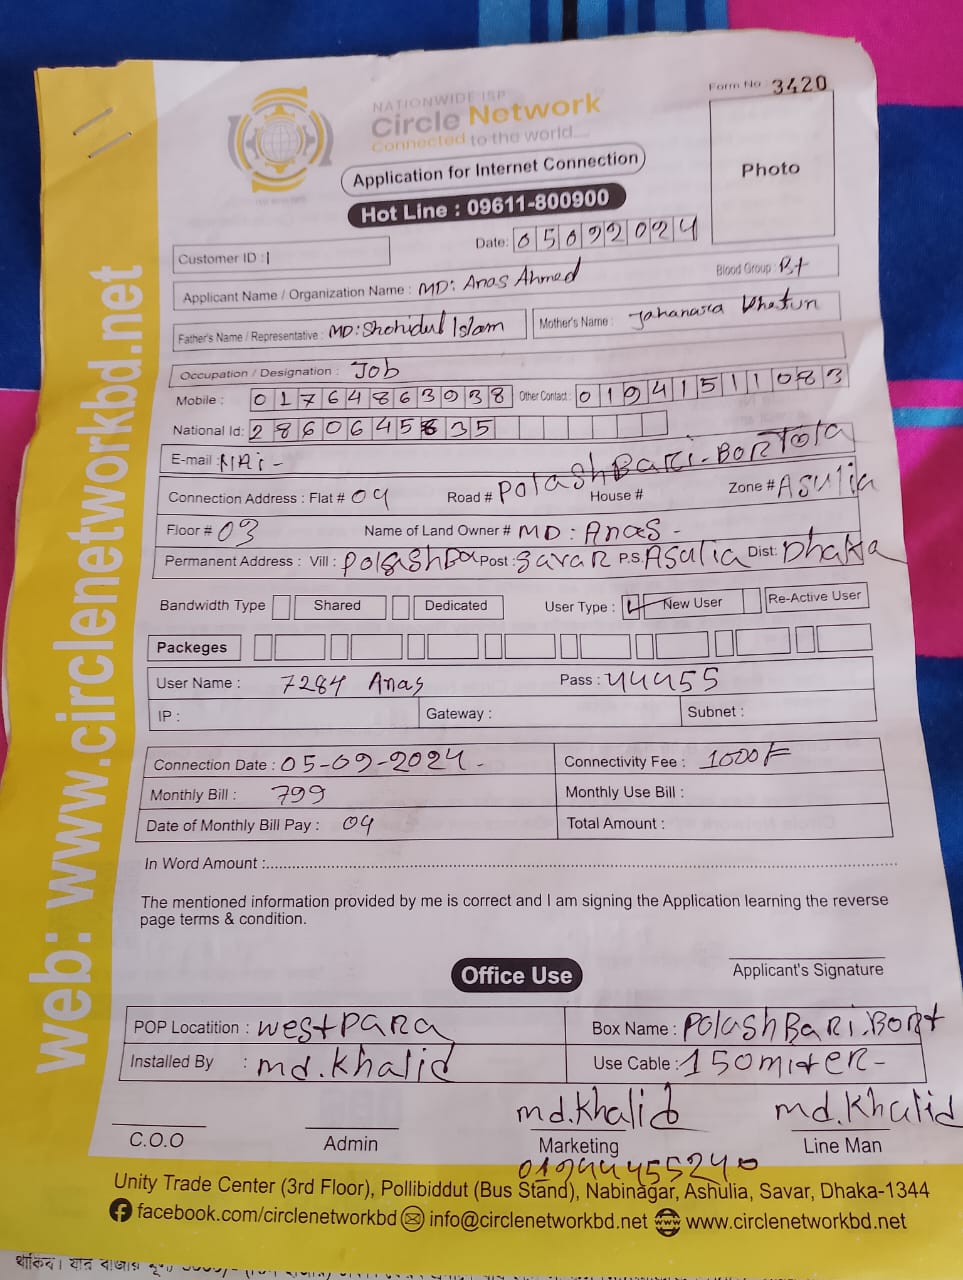 Form No : 3420
NATIONWIDE ISP
Circle Network
Connected to the world....
Photo
Application for Internet Connection
Hot Line : 09611-800900
Date: 05092024
Customer ID :
Applicant Name / Organization Name : MD: Anas Ahmed Blood Group : B+
Father's Name / Representative : MD: Shohidul Islam Mother's Name : Jahanara Khatun
Occupation / Designation : Job
Mobile : 01764863938 Other Contact : 01941511083
National Id: 2860645835
E-mail :
Connection Address : Flat # 04 Road # Polash Bari - Bortola House # Zone # Asulia
Floor # 03 Name of Land Owner # MD : Anas -
Permanent Address : Vill : Polashba Post : Savar P.S. Asulia Dist: Dhaka
Bandwidth Type Shared Dedicated User Type : New User Re-Active User
Packeges
User Name : 7284 Anas Pass : 44455
IP : Gateway : Subnet :
Connection Date : 05-09-2024 - Connectivity Fee : 1000
Monthly Bill : 799 Monthly Use Bill :
Date of Monthly Bill Pay : 04 Total Amount :
In Word Amount :
The mentioned information provided by me is correct and I am signing the Application learning the reverse
page terms & condition.
Applicant's Signature
Office Use
POP Locatition : west para Box Name : Polash Bari. Bort
Installed By : md. Khalid Use Cable : 150 miter -
md. Khalid md. Khalid
C.O.O Admin Marketing Line Man
Unity Trade Center (3rd Floor), Pollibiddut (Bus Stand), Nabinagar, Ashulia, Savar, Dhaka-1344
facebook.com/circlenetworkbd info@circlenetworkbd.net www.circlenetworkbd.net
web: www.circlenetworkbd.net